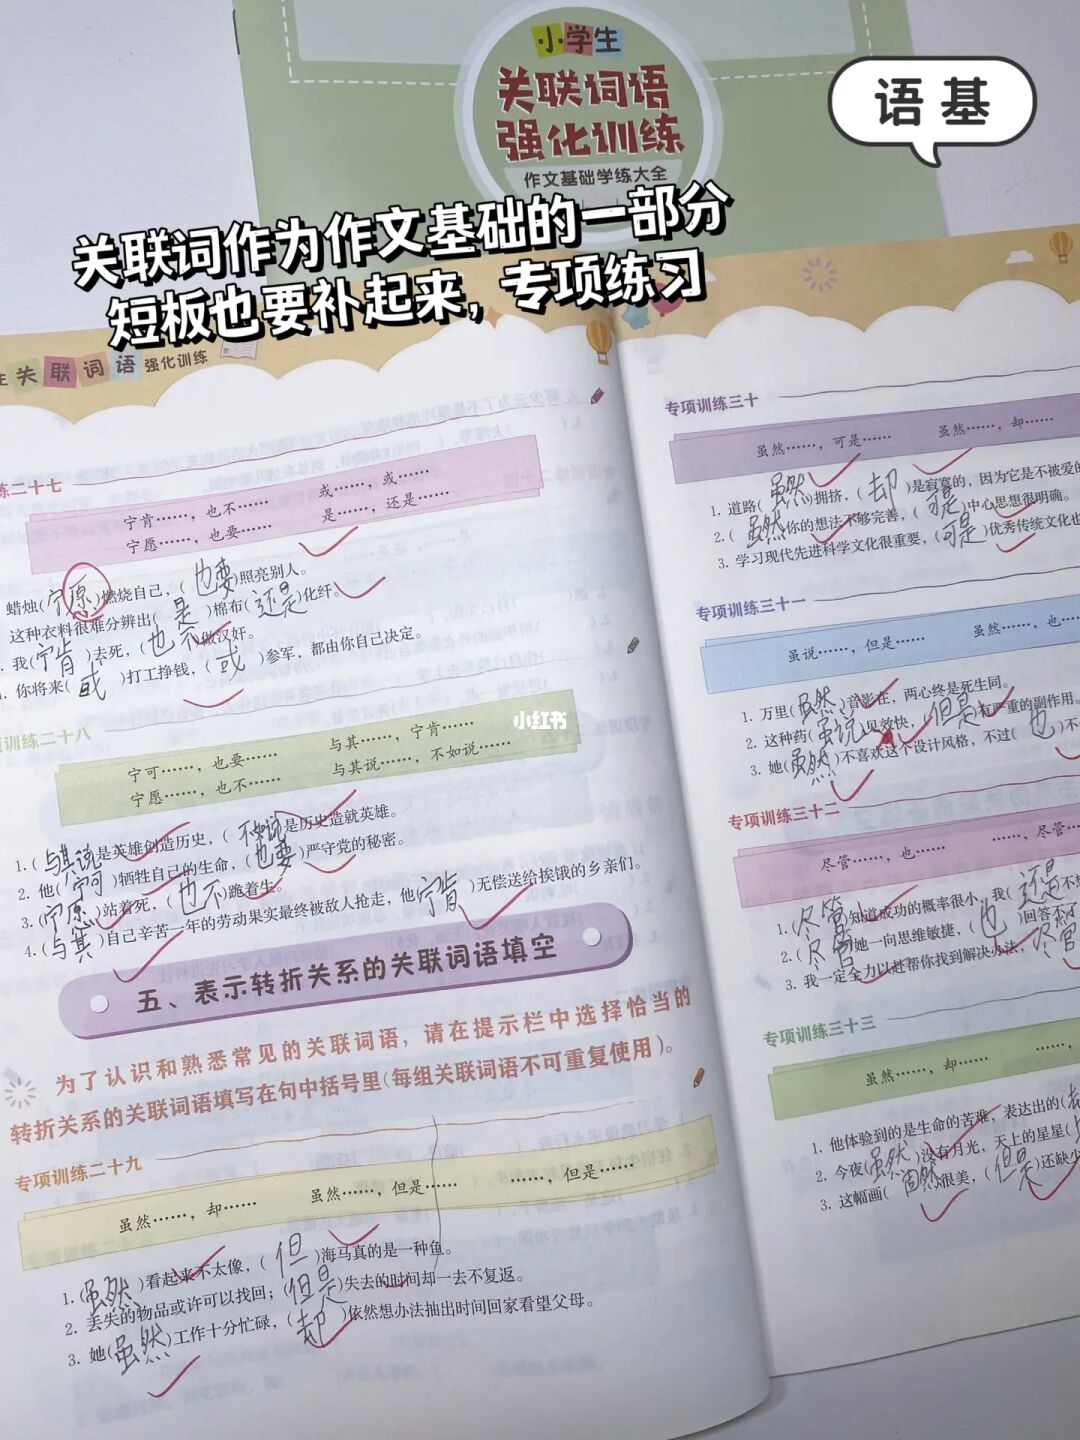 小学生
关联词语
强化训练
作文基础学练大全
语基
关联词作为作文基础的一部分
短板也要补起来，专项练习
生关联词语强化训练
练二十七
宁肯……，也不…… 或……，或……
宁愿……，也要…… 是……，还是……
蜡烛(宁愿)燃烧自己，(也要)照亮别人。
这种衣料很难分辨出(是)棉布(还是)化纤。
我(宁肯)去死，(也不)做汉奸。
你将来(或)打工挣钱，(或)参军，都由你自己决定。
训练二十八
宁可……，也要…… 与其……，宁肯……
宁愿……，也不…… 与其说……，不如说……
小红书
1. (与其说)是英雄创造历史，(不如说)是历史造就英雄。
2. 他(宁可)牺牲自己的生命，(也要)严守党的秘密。
3. (宁愿)站着死，(也不)跪着生。
4. (与其)自己辛苦一年的劳动果实最终被敌人抢走，他(宁肯)无偿送给挨饿的乡亲们。
五、表示转折关系的关联词语填空
为了认识和熟悉常见的关联词语，请在提示栏中选择恰当的
转折关系的关联词语填写在句中括号里(每组关联词语不可重复使用)。
专项训练二十九
虽然……，却…… 虽然……，但是…… ……，但是……
1. (虽然)看起来不太像，(但)海马真的是一种鱼。
2. 丢失的物品或许可以找回；(但是)失去的时间却一去不复返。
3. 她(虽然)工作十分忙碌，(却)依然想办法抽出时间回家看望父母。
专项训练三十
虽然……，可是…… 虽然……，却……
1. 道路(虽然)拥挤，(却)是寂寞的，因为它是不被爱的
2. (虽然)你的想法不够完善，(可是)中心思想很明确。
3. 学习现代先进科学文化很重要，(可是)优秀传统文化也
专项训练三十一
虽说……，但是…… 虽然……，也……
1. 万里(虽然)音影在，两心终是死生同。
2. 这种药(虽说)见效快，(但是)有严重的副作用。
3. 她(虽然)不喜欢这个设计风格，不过(也)不
专项训练三十二
尽管……，也…… ……，尽管……
1. (尽管)知道成功的概率很小，我(还是)不想
2. (尽管)她一向思维敏捷，(也)回答不
3. 我一定全力以赴帮你找到解决办法，(尽管
专项训练三十三
虽然……，却…… ……，
1. 他体验到的是生命的苦难，表达出的(却
2. 今夜(虽然)没有月光，天上的星星(
3. 这幅画(固然)很美，(但是)还缺少